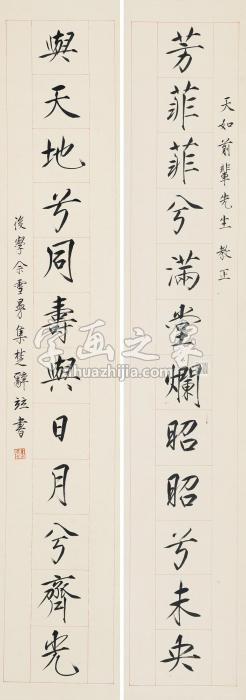 天如前輩先生 教正
芳菲菲兮滿堂爛昭昭兮未央
與天地兮同壽與日月兮齊光
後學余雪曼集楚辭竝書
字画之家
zihuazhijia.com